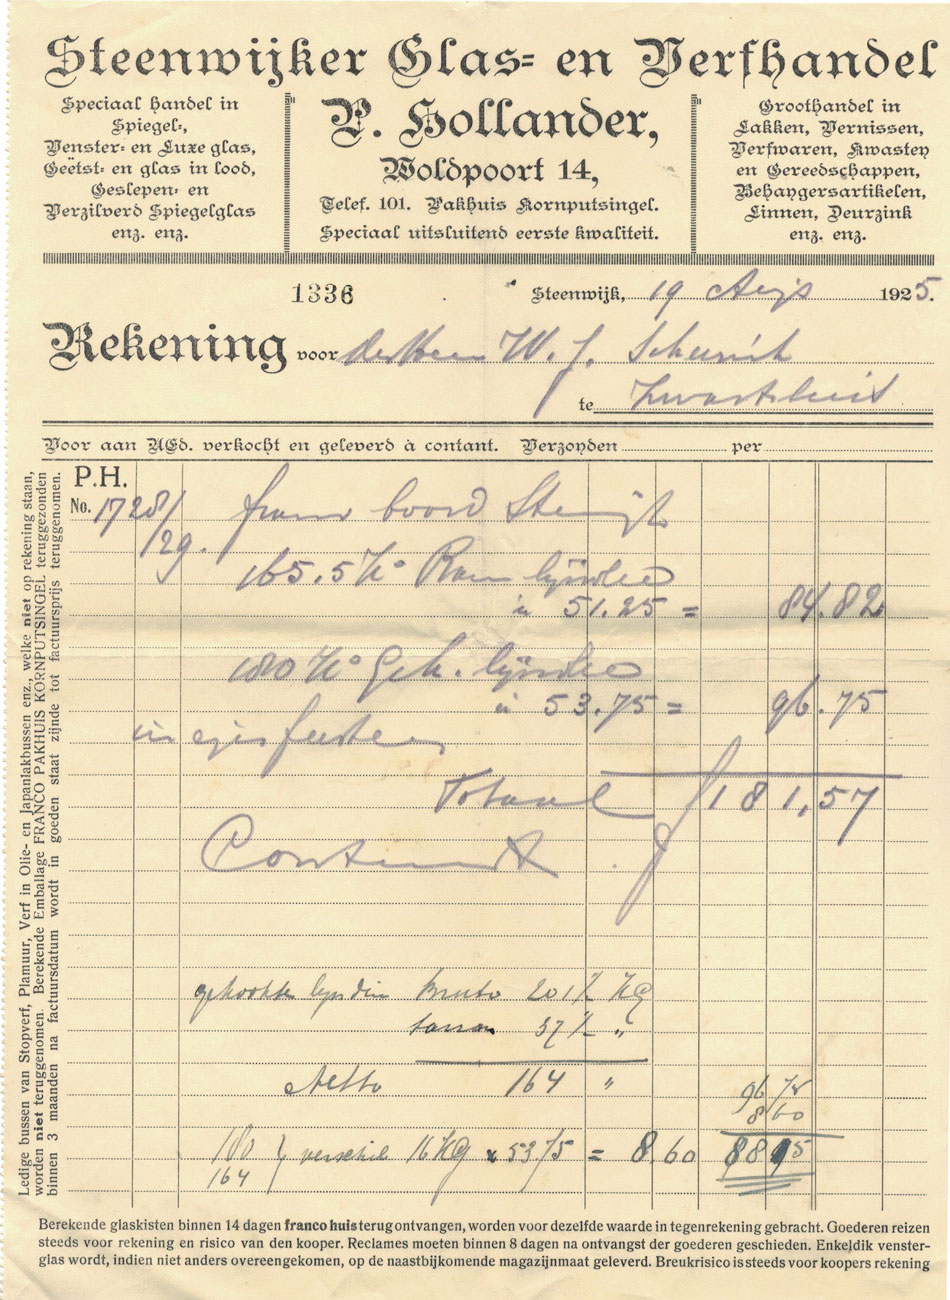 Steenwijker Glas- en Verfhandel
Speciaal handel in
Spiegel-,
Venster- en Luxe glas,
Geëtst- en glas in lood,
Geslepen- en
Verzilverd Spiegelglas
enz. enz.
P. Hollander,
Woldpoort 14,
Telef. 101. Pakhuis Kornputsingel.
Speciaal uitsluitend eerste kwaliteit.
Groothandel in
Lakken, Vernissen,
Verfwaren, Kwasten
en Gereedschappen,
Behangersartikelen,
Linnen, Deurzink
enz. enz.
1336
Steenwijk, 19 Aug 1925.
Rekening voor den Heer W. J.
te Zwartsluis
Voor aan UEd. verkocht en geleverd à contant. Verzonden per
P.H.
No. 1728/
/29. franco boord
165.5 Ko Rauw lijnolie
à 51.25 = 84.82
180 Ko Gek. lijnolie
à 53.75 = 96.75
Totaal f 181,57
Contant f
gekookte Bruto 201½ KG
tarra 37½ "
Netto 164 "
96/75
8/60
180
164 } verschil 16 KG x 53/75 = 8.60 88 15
Ledige bussen van Stopverf, Plamuur, Verf in Olie- en Japanlakbussen enz., welke niet op rekening staan,
worden niet teruggenomen. Berekende Emballage FRANCO PAKHUIS KORNPUTSINGEL teruggezonden
binnen 3 maanden na factuursdatum wordt in goeden staat zijnde tot factuursprijs teruggenomen.
Berekende glaskisten binnen 14 dagen franco huis terug ontvangen, worden voor dezelfde waarde in tegenrekening gebracht. Goederen reizen
steeds voor rekening en risico van den kooper. Reclames moeten binnen 8 dagen na ontvangst der goederen geschieden. Enkeldik venster-
glas wordt, indien niet anders overeengekomen, op de naastbijkomende magazijnmaat geleverd. Breukrisico is steeds voor koopers rekening